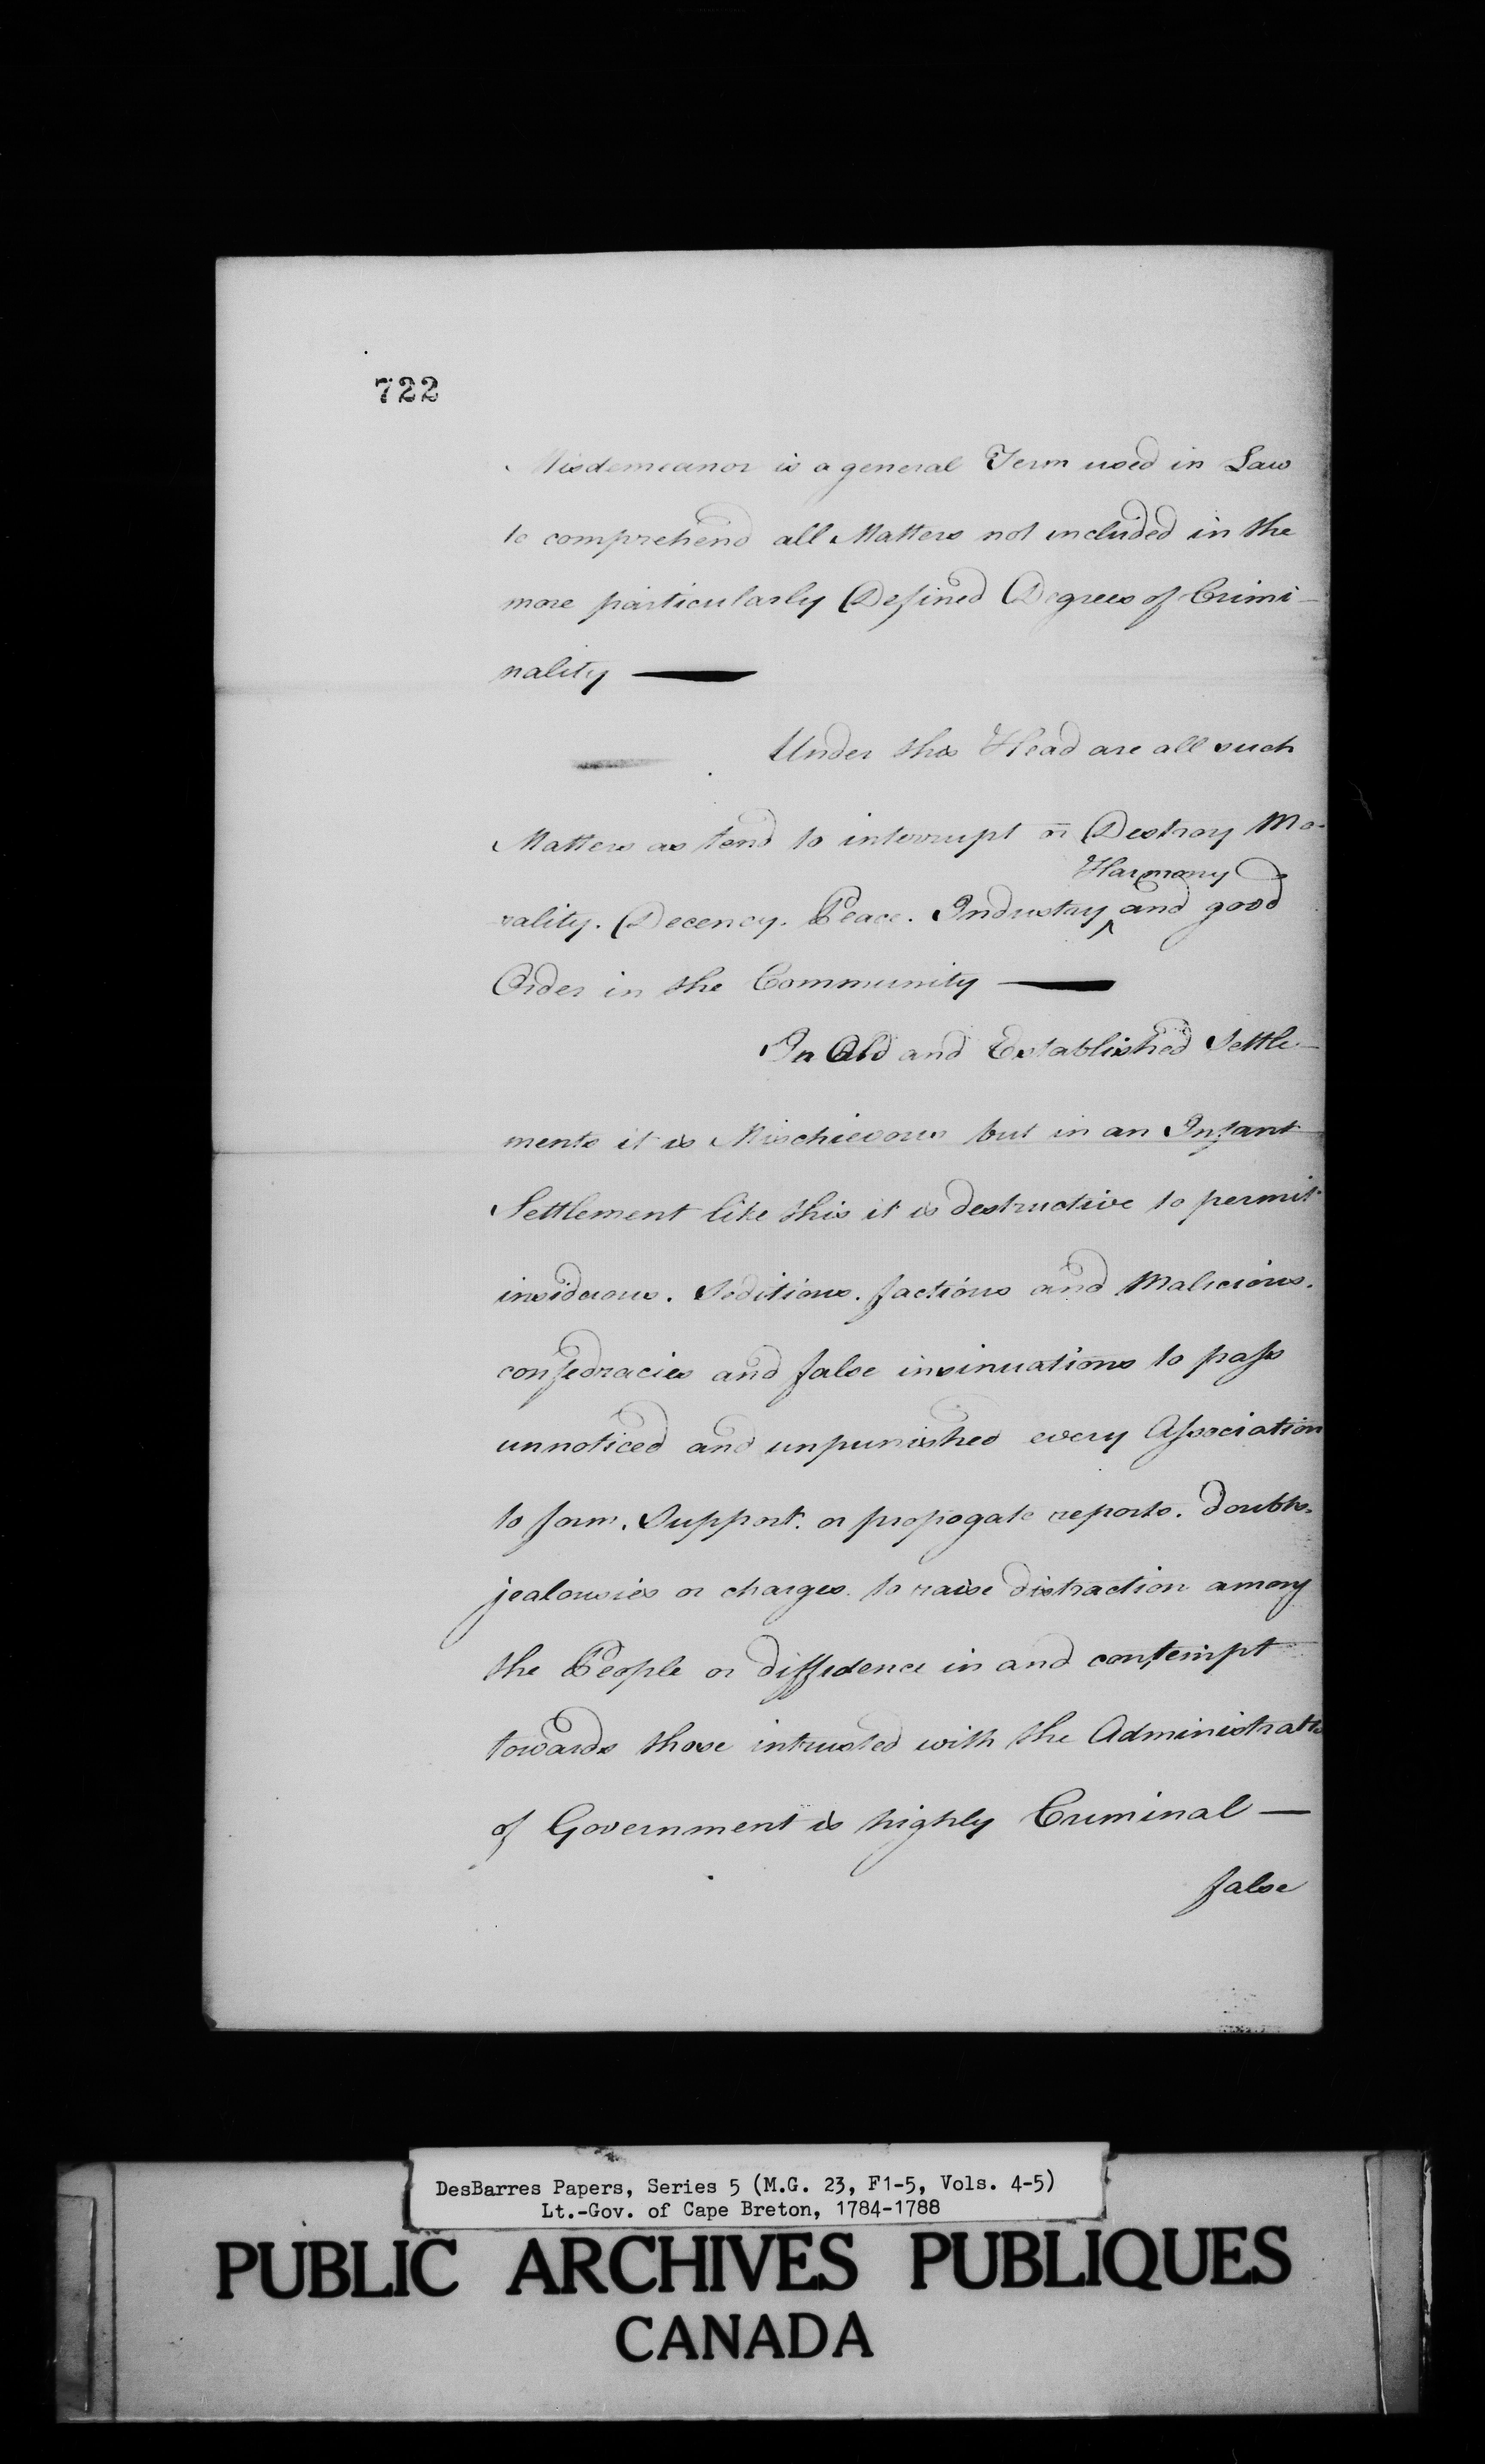 722
Misdemeanor is a general Term used in Law
to comprehend all Matters not included in the
more particularly Defined Degrees of Crimi-
nality —
Under this Head are all such
Matters as tend to interrupt or Destroy Mo-
Harmony
rality. Decency. Peace. Industry ^ and good
Order in the Community —
In Old and Established Settle-
ments it is Mischievous but in an Infant
Settlement like this it is destructive to permit
insiduous. Seditious. factious and Malicious.
confedracies and false insinuations to pass
unnoticed and unpunished every Association
to form. Support. or propogate reports. doubts.
jealousies or charges. to raise distraction among
the People or diffidence in and contempt
towards those intrusted with the Administratn
of Government is highly Criminal —
false
DesBarres Papers, Series 5 (M.G. 23, F1-5, Vols. 4-5)
Lt.-Gov. of Cape Breton, 1784-1788
PUBLIC ARCHIVES PUBLIQUES
CANADA